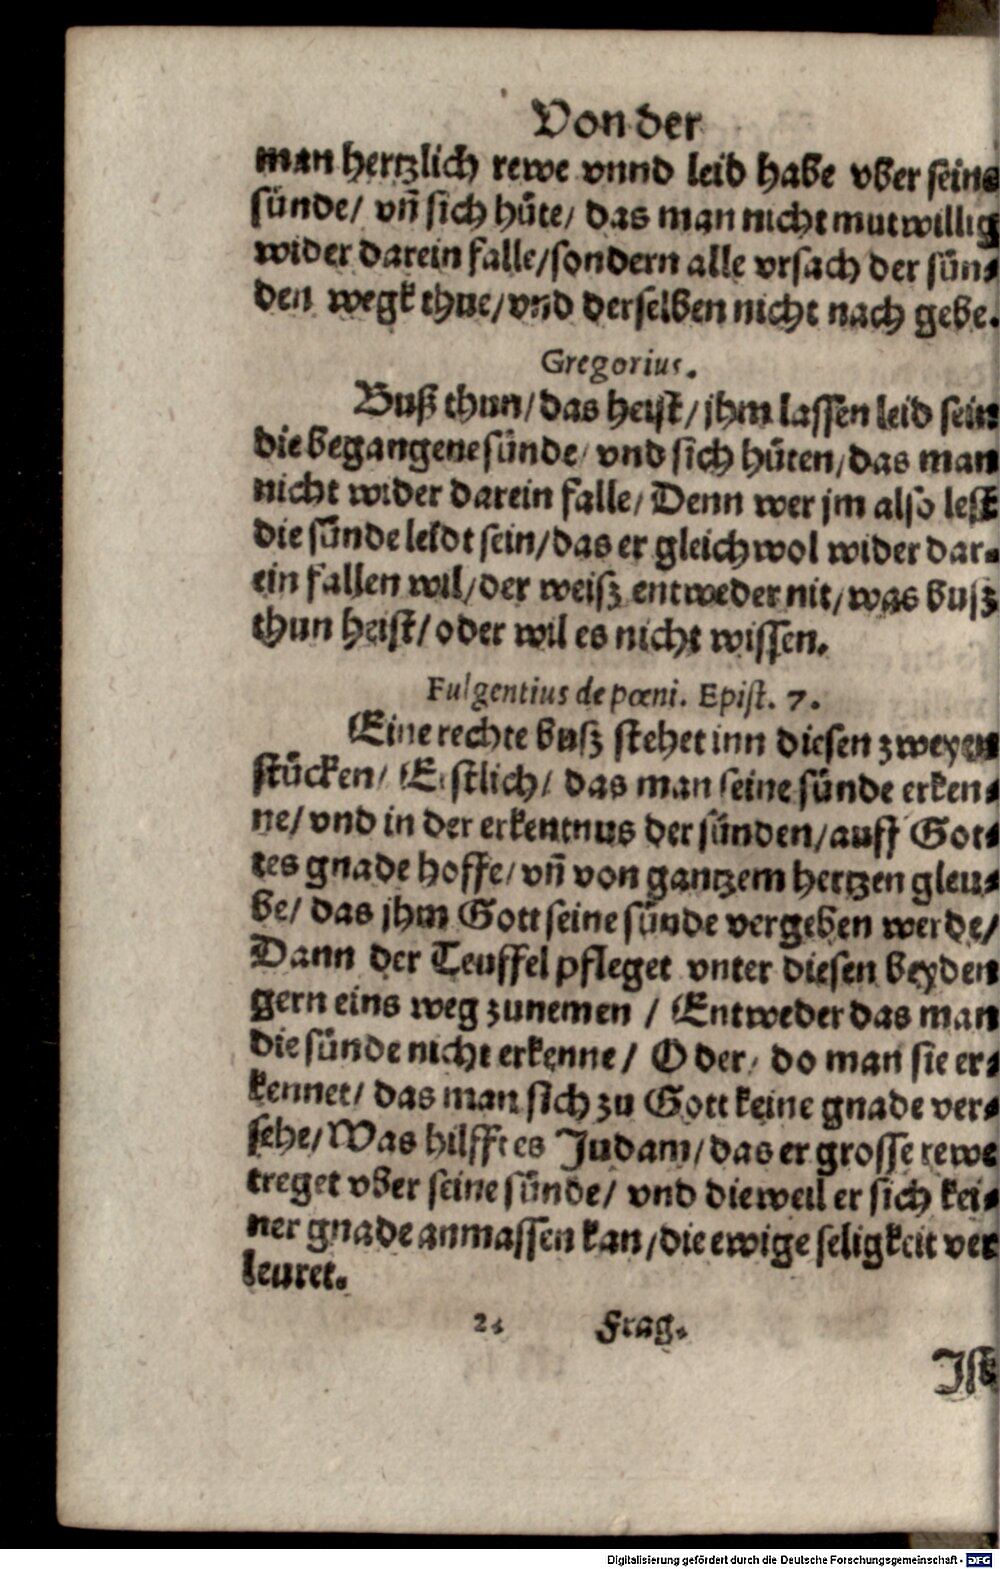 Von der
man hertzlich rewe vnnd leid habe vber seine
sünde/ vñ sich hüte/ das man nicht mutwillig
wider darein falle/ sondern alle vrsach der sün-
den wegk thue/ vnd derselben nicht nach gebe.
Gregorius.
Buß thun/ das heist/ jhm lassen leid sein
die begangene sünde/ vnd sich hüten/ das man
nicht wider darein falle/ Denn wer jm also lest
die sünde leidt sein/ das er gleichwol wider dar-
ein fallen wil/ der weisz entweder nit/ was busz
thun heist/ oder wil es nicht wissen.
Fulgentius de pœni. Epist. 7.
Eine rechte busz stehet inn diesen zweyen
stücken/ Erstlich/ das man seine sünde erken-
ne/ vnd in der erkentnus der sünden/ auff Got-
tes gnade hoffe/ vñ von gantzem hertzen gleu-
be/ das jhm Gott seine sünde vergeben werde/
Dann der Teuffel pfleget vnter diesen beyden
gern eins weg zunemen / Entweder das man
die sünde nicht erkenne/ Oder/ do man sie er-
kennet/ das man sich zu Gott keine gnade ver-
sehe/ Was hilfft es Judam/ das er grosse rewe
treget vber seine sünde/ vnd dieweil er sich kei-
ner gnade anmassen kan/ die ewige seligkeit ver
leuret.
24 Frag.
Ist
Digitalisierung gefördert durch die Deutsche Forschungsgemeinschaft - DFG